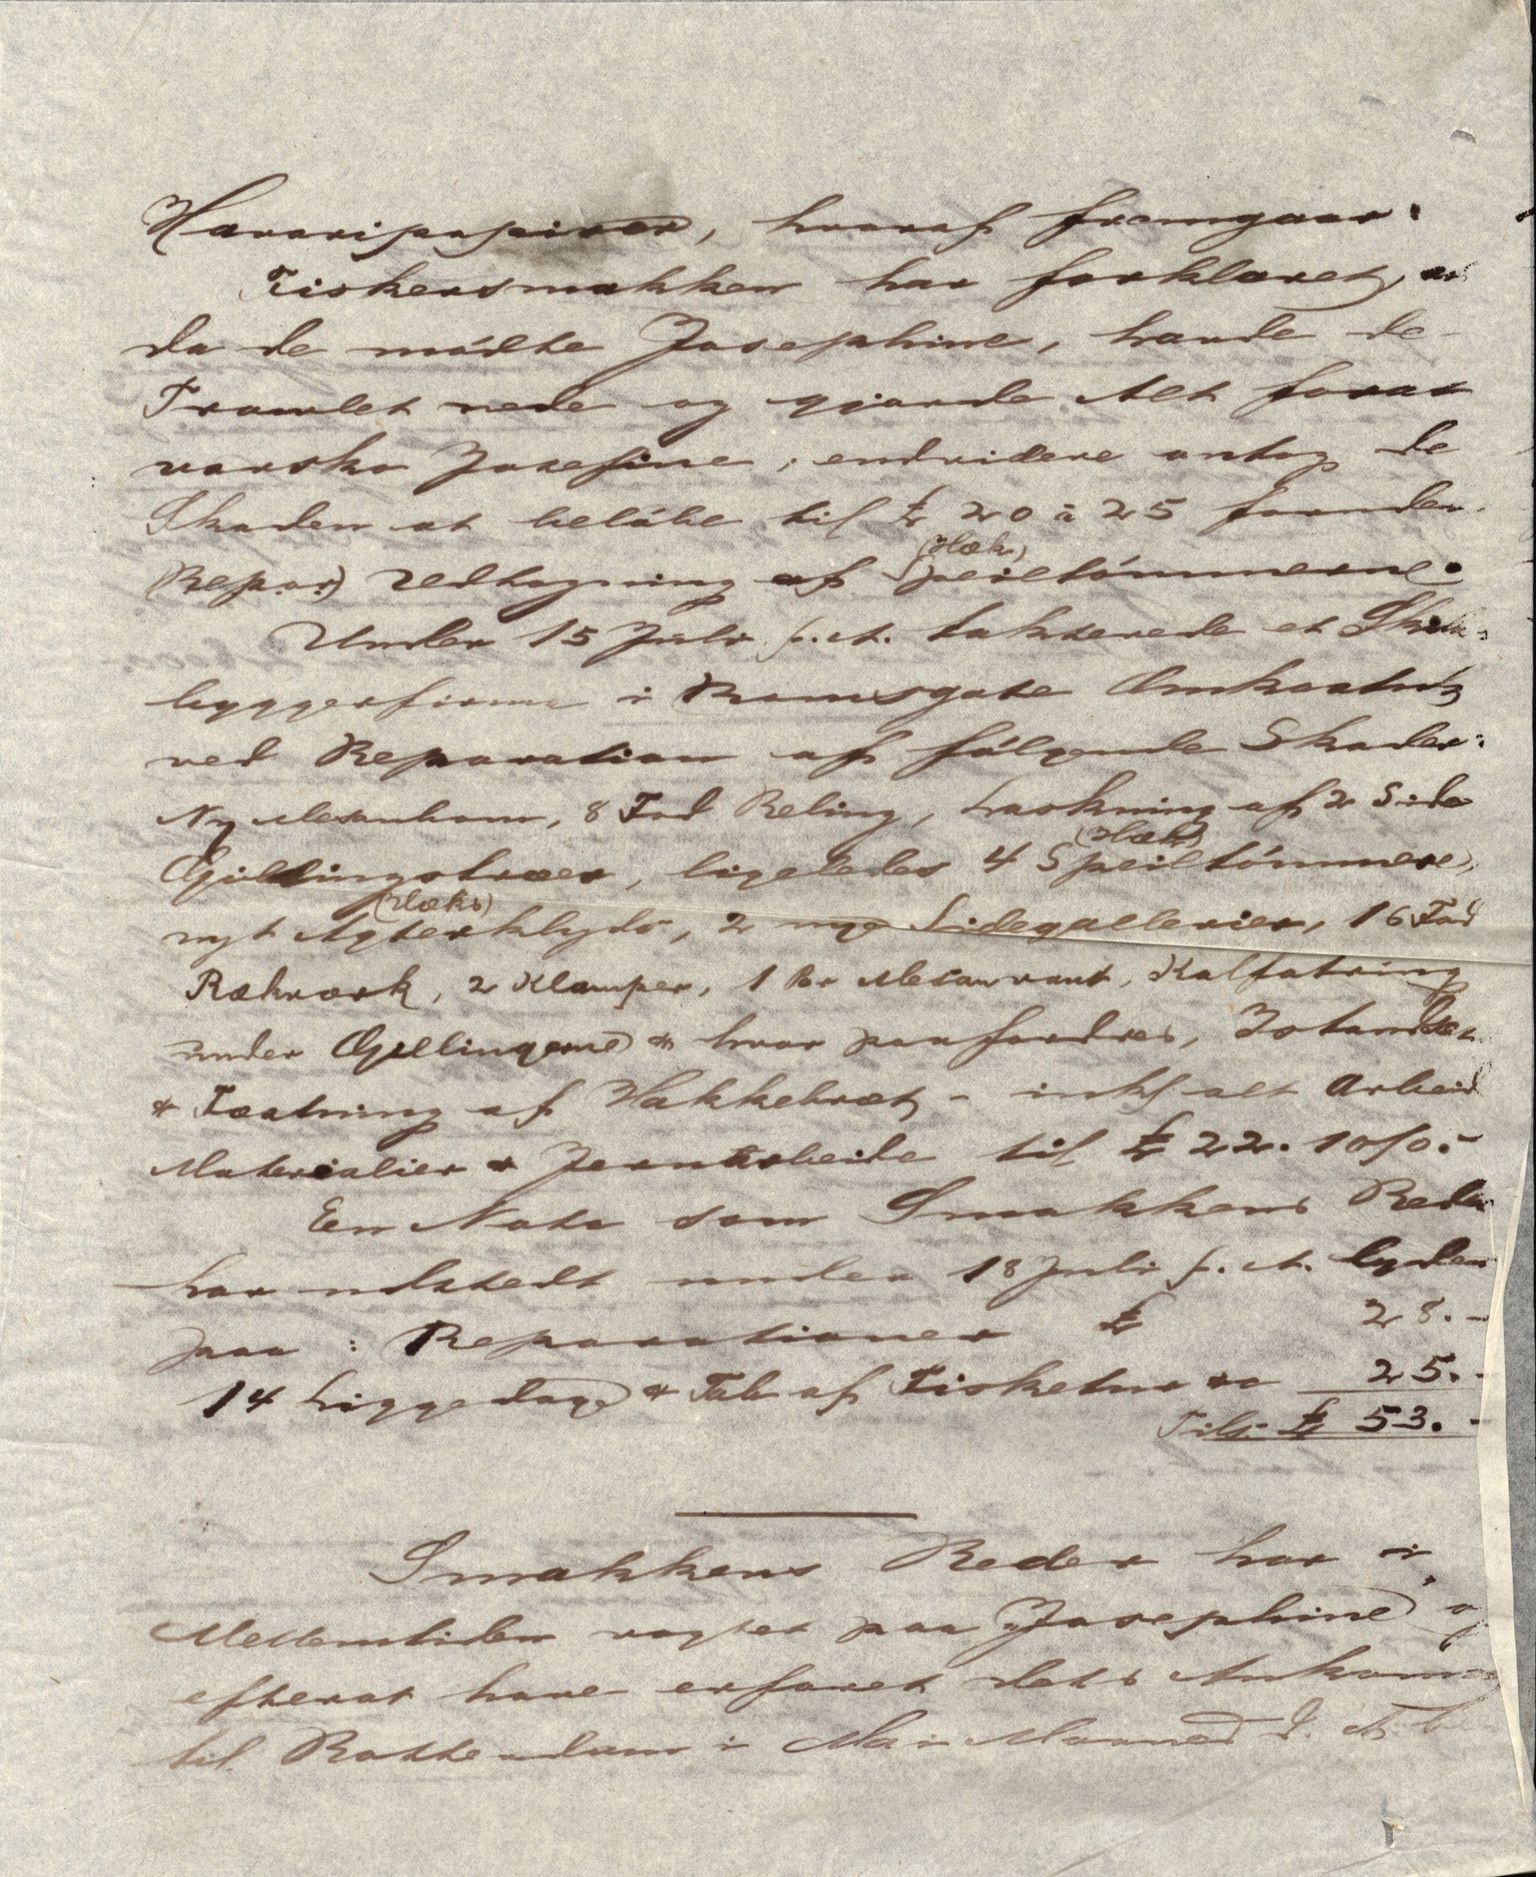 Havaripapirer, hvoraf fremgaar:
Fiskersmakken har forklaret, at
da de mødte Josephine, havde de
Trawlet nede og gjorde Alt forat
varsko Josefine, endvidere antog de
Skaden at beløbe til £ 20 à 25 foruden
(Hæk)
Repar.) Udtagning af Speiltømmerne.
Under 15 Juli s. A. taksterede et Skibs-
byggerfirma i Ramsgate Omkostng
ved Reparation af følgende Skader:
Ny Mesanbom, 8 Fod Reling, Laskning af 2 Side
(Hæk)
Gillingstræer, ligeledes 4 Speiltømmere,
(Hæks)
nyt Agterklyds, 2 nye Sidegallerier, 16 Fod
Rækværk, 2 Klamper, 1 Par Mesanvant, Kalfatring
under Gillingerne & hvor paafordres, Istandset.
& Tætning af Hakkebræt, - inkl alt Arbeid
Materialier & Jernarbeide til £ 22. 10/0.-
En Nota som Smakkens Reder
har udstedt under 18 Juli s. A. lyder
paa: Reparationer £ 28.-
14 Liggedage & Tab af Fisketur &c 25.-
Tils. £ 53.-
Smakkens Reder har i
Mellemtiden vogtet paa Josephine og
efterat have erfaret dets Ankomst
til Rotterdam i Mai Maaned d. A.